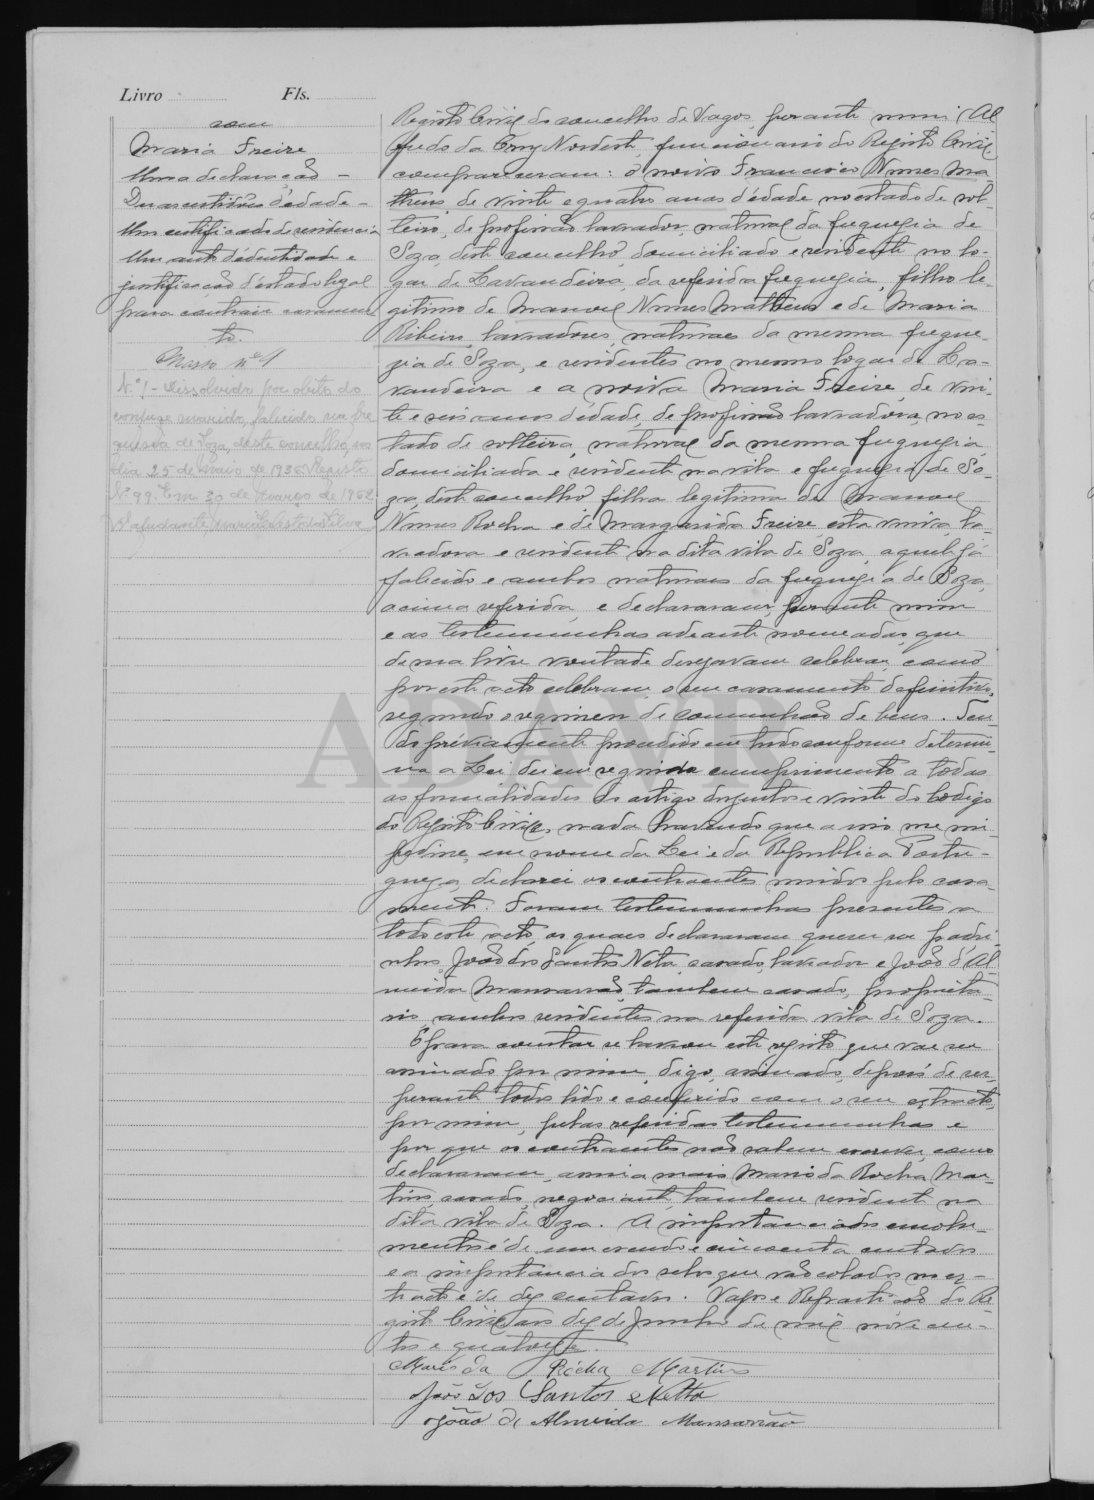 Livro Fls.
com
Maria Freire
Uma declaração -
Duas certidões d'edade -
Um certificado de residencia
Um auto d'identidade e
justificação d'estado legal
para contrair casamen-
to.
Masso nº 1
Nº 1 - Dissolvido por óbito do
conjuge marido, falecido na fre
guesia de Soza, deste concelho, no
dia 25 de Maio de 1935. Registo
Nº 99. Em 30 de Março de 1952
O ajudante,
Registo Civil do concelho de Vagos, perante mim Al
fredo da Cruz Nordeste, funcionario do Registo Civil
compareceram: o noivo Francisco Nunes Ma-
theus, de vinte e quatro anos d'edade no estado de sol-
teiro, de profissão lavrador, natural da freguezia de
Soza, deste concelho, domiciliado e residente no lo-
gar de Lavandeira, da referida freguezia, filho le-
gitimo de Manoel Nunes Matheus e de Maria
Ribeiro, lavradores, naturaes da mesma fregue-
zia de Soza, e residentes no mesmo logar da La-
vandeira e a noiva Maria Freire, de vin-
te e seis anos d'edade, de profissão lavradora, no es-
tado de solteira, natural da mesma freguezia
domiciliada e residente na vila e freguezia de So-
za, deste concelho filha legitima de Manoel
Nunes Rocha e de Margarida Freire, esta viuva, la-
vradora e residente na dita vila de Soza, aquele já
falecido e ambos naturaes da freguezia de Soza,
acima referida, e declararam, perante mim
e as testemunhas adeante nomeadas, que
de sua livre vontade desejavam celebrar, como
por este acto celebram, o seu casamento definitivo,
segundo o regimen de comunhão de bens. Ten-
do préviamente procedido em tudo conforme determi-
na a Lei dei em seguida cumprimento a todas
as formalidades do artigo duzentos e vinte do Codigo
do Registo Civil, nada havendo que a isso me im-
pedisse, em nome da Lei e da Republica Portu-
gueza, declarei os contraentes unidos pelo casa-
mento. Foram testemunhas presentes a
todo este acto, os quaes declararam querer ser padri-
nhos, João dos Santos Neto, casado, lavrador e João d'Al-
meida Mansarrão, tambem casado, proprieta-
rio, ambos residentes na referida vila de Soza.
E para constar se lavrou este registo que vae ser
assinado por mim, digo, assinado, depois de ser,
perante todos lido e conferido com o seu extracto,
por mim, pelas referidas testemunhas e
por que os contraentes não sabem escrever, como
declararam, assina mais Mario da Rocha Mar-
tins, casado, negociante, tambem residente na
dita vila de Soza. A importancia dos emolu-
mentos é de um escudo e cincoenta centavos
e a importancia dos selos que vão colados no ex-
tracto é de dez centavos. Vagos e Repartição do Re-
gisto Civil, aos dez de Junho de mil nove cen-
tos e quatorze.
Mario da Rocha Martins
João dos Santos Netto
João de Almeida Mansarrão
ADAVR